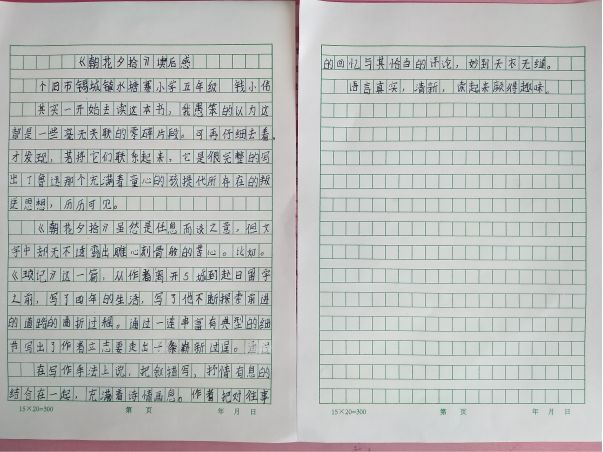 《朝花夕拾》读后感
个旧市锡城镇水塘寨小学五年级 钱小伟
其实一开始去读这本书，我愚笨的认为这
都是一些毫无关联的零碎片段。可再仔细去看，
才发现，若将它们联系起来，它是很完整的写
出了鲁迅那个充满着童心的孩提代所存在的叛
逆思想，历历可见。
《朝花夕拾》虽然是任意而谈之意，但文
字中却无不透露出雕心刻骨般的苦心。比如。
《琐记》这一篇，从作者离开S城到赴日留学
之前，写了四年的生活，写了他不断探索前进
的道路的曲折过程。通过一连串富有典型的细
节写出了作者立志要走出一条崭新过程。通过
在写作手法上说，把叙描写，抒情有息的
结合在一起，充满着诗情画意。作者把对往事
15×20=300 第 页 年 月 日
的回忆与其恰当的评论，妙到天衣无缝。
语言真实，清新，读起来颇得趣味。
15×20=300 第 页 年 月 日